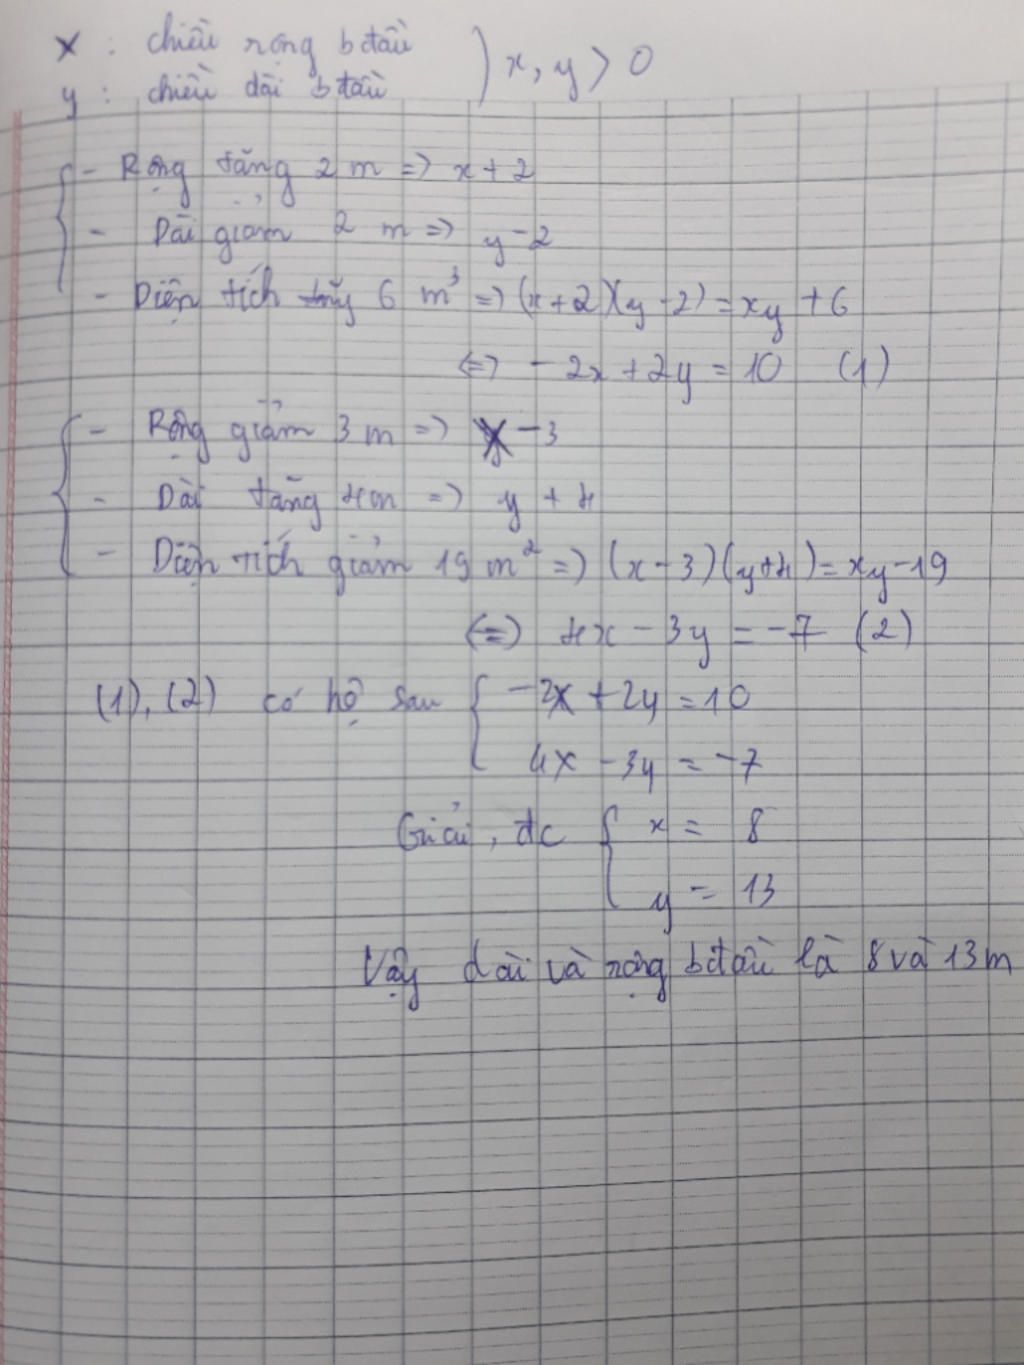 x : chiều rộng b đầu
y : chiều dài b đầu ) x, y > 0
- Rộng tăng 2 m => x + 2
- Dài giảm 2 m => y - 2
- Diện tích 6 m³ => (x + 2)(y - 2) = xy + 6
<=> - 2x + 2y = 10 (1)
- Rộng giảm 3 m => x - 3
- Dài tăng 4m => y + 4
- Diện tích giảm 19 m² => (x - 3)(y+4) = xy - 19
<=> 4x - 3y = -7 (2)
(1), (2) có hệ sau { -2x + 2y = 10
4x - 3y = -7
Giải, đc { x = 8
y = 13
Vậy dài và rộng b đầu là 8 và 13 m